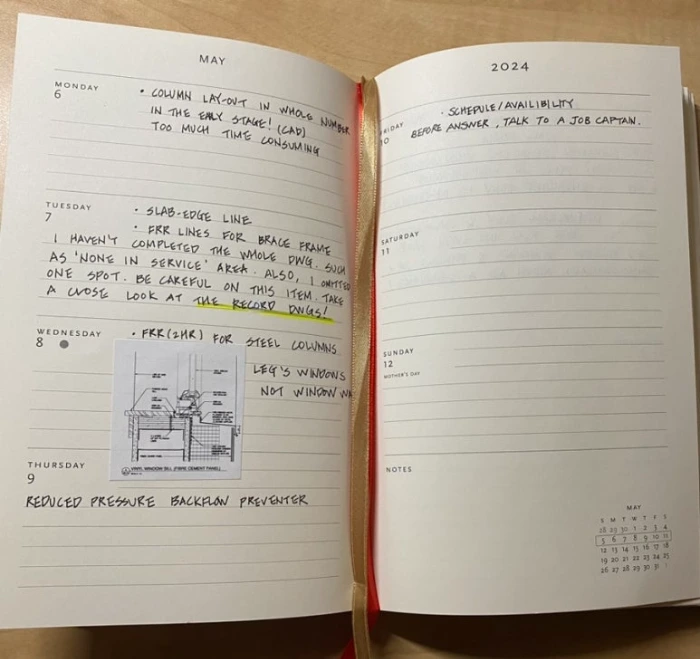 MAY
MONDAY
6
• COLUMN LAY-OUT IN WHOLE NUMBER
IN THE EARLY STAGE! (CAD)
TOO MUCH TIME CONSUMING
TUESDAY
7
• SLAB-EDGE LINE
• FRR LINES FOR BRACE FRAME
I HAVEN'T COMPLETED THE WHOLE DWG. SUCH
AS 'NONE IN SERVICE' AREA. ALSO, I OMITTED
ONE SPOT. BE CAREFUL ON THIS ITEM. TAKE
A CLOSE LOOK AT THE RECORD DWGS!
WEDNESDAY
8
• FRR(2HR) FOR STEEL COLUMNS
LEG'S WINDOWS
NOT WINDOW WA
VINYL WINDOW SILL (FIBRE CEMENT PANEL)
THURSDAY
9
REDUCED PRESSURE BACKFLOW PREVENTER
2024
• SCHEDULE/AVAILIBILITY
RIDAY
10
BEFORE ANSWER, TALK TO A JOB CAPTAIN.
SATURDAY
11
SUNDAY
12
MOTHER'S DAY
NOTES
MAY
S M T W T F S
28 29 30 1 2 3 4
5 6 7 8 9 10 11
12 13 14 15 16 17 18
19 20 21 22 23 24 25
26 27 28 29 30 31 1